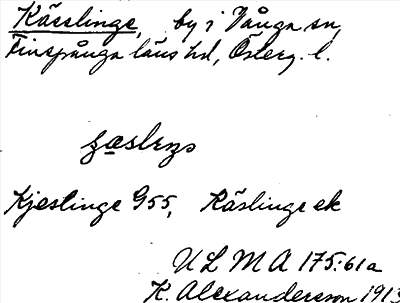 Kässlinge, by i Vånga sn,
Finspånga läns hd, Österg. l.
Kjeslinge G55, Käslinge ek
ULMA 175:61a
K. Alexandersson 1913